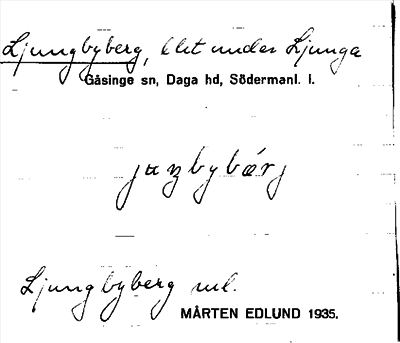 Ljungbyberg, lht under Ljunga
Gåsinge sn, Daga hd, Södermanl. l.
juŋbybærj
Ljungbyberg ul.
MÅRTEN EDLUND 1935.